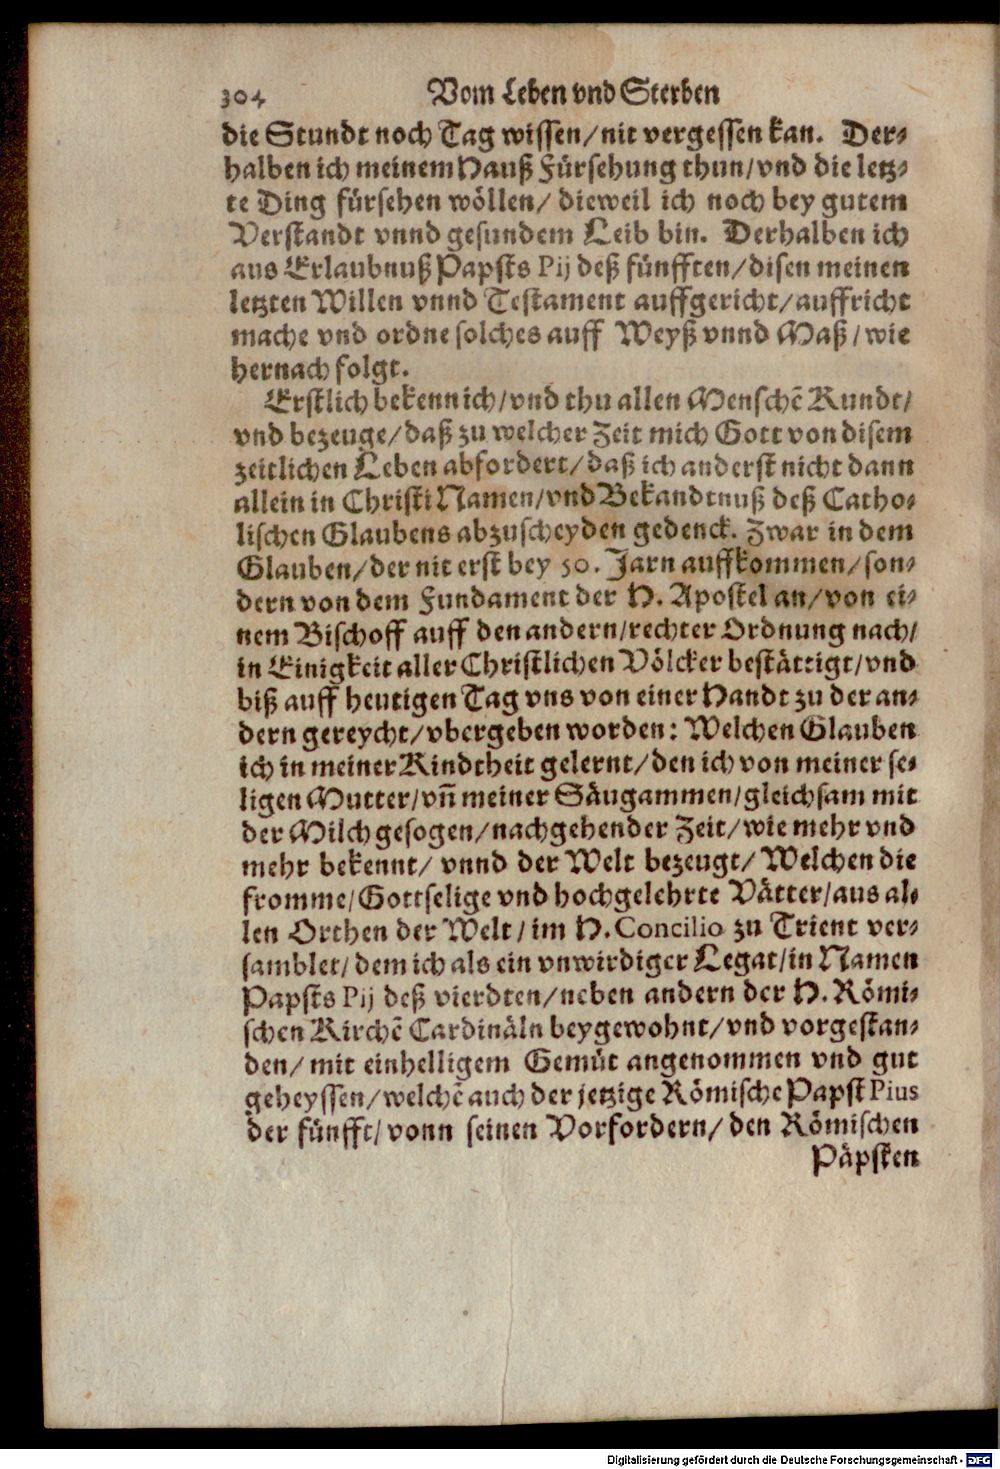 304 Vom Leben vnd Sterben
die Stundt noch Tag wissen/nit vergessen kan. Der-
halben ich meinem Hauß Fürsehung thun/vnd die letz-
te Ding fürsehen wöllen/ dieweil ich noch bey gutem
Verstandt vnnd gesundem Leib bin. Derhalben ich
aus Erlaubnuß Papsts Pij deß fünfften/disen meinen
letzten Willen vnnd Testament auffgericht/auffricht
mache vnd ordne solches auff Weyß vnnd Maß/wie
hernach folgt.
Erstlich bekenn ich/vnd thu allen Menschẽ Kundt/
vnd bezeuge/daß zu welcher Zeit mich Gott von disem
zeitlichen Leben abfordert/daß ich anderst nicht dann
allein in Christi Namen/vnd Bekandtnuß deß Catho-
lischen Glaubens abzuscheyden gedenck. Zwar in dem
Glauben/der nit erst bey 50. Jarn auffkommen/son-
dern von dem Fundament der H. Apostel an/von ei-
nem Bischoff auff den andern/rechter Ordnung nach/
in Einigkeit aller Christlichen Völcker bestättigt/vnd
biß auff heutigen Tag vns von einer Handt zu der an-
dern gereycht/vbergeben worden: Welchen Glauben
ich in meiner Kindtheit gelernt/den ich von meiner se-
ligen Mutter/vñ meiner Säugammen/gleichsam mit
der Milch gesogen/nachgehender Zeit/wie mehr vnd
mehr bekennt/ vnnd der Welt bezeugt/ Welchen die
fromme/Gottselige vnd hochgelehrte Vätter/aus al-
len Orthen der Welt/im H. Concilio zu Trient ver-
samblet/dem ich als ein vnwirdiger Legat/in Namen
Papsts Pij deß vierdten/neben andern der H. Römi-
schen Kirchẽ Cardinäln beygewohnt/vnd vorgestan-
den/ mit einhelligem Gemüt angenommen vnd gut
geheyssen/welchẽ auch der jetzige Römische Papst Pius
der fünfft/ vonn seinen Vorfordern/ den Römischen
Päpsten
Digitalisierung gefördert durch die Deutsche Forschungsgemeinschaft - DFG